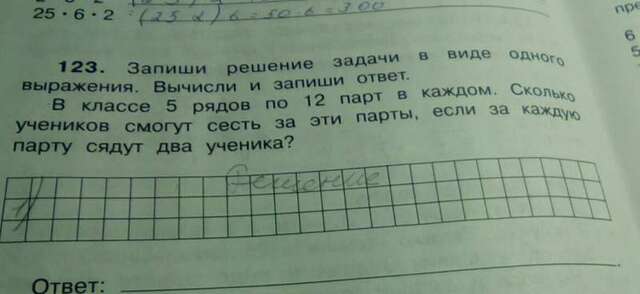 25 · 6 · 2 = (25 2) 6 = 50 · 6 = 300
пре
6
5
123. Запиши решение задачи в виде одного
выражения. Вычисли и запиши ответ.
В классе 5 рядов по 12 парт в каждом. Сколько
учеников смогут сесть за эти парты, если за каждую
парту сядут два ученика?
Решение
1)
Ответ: